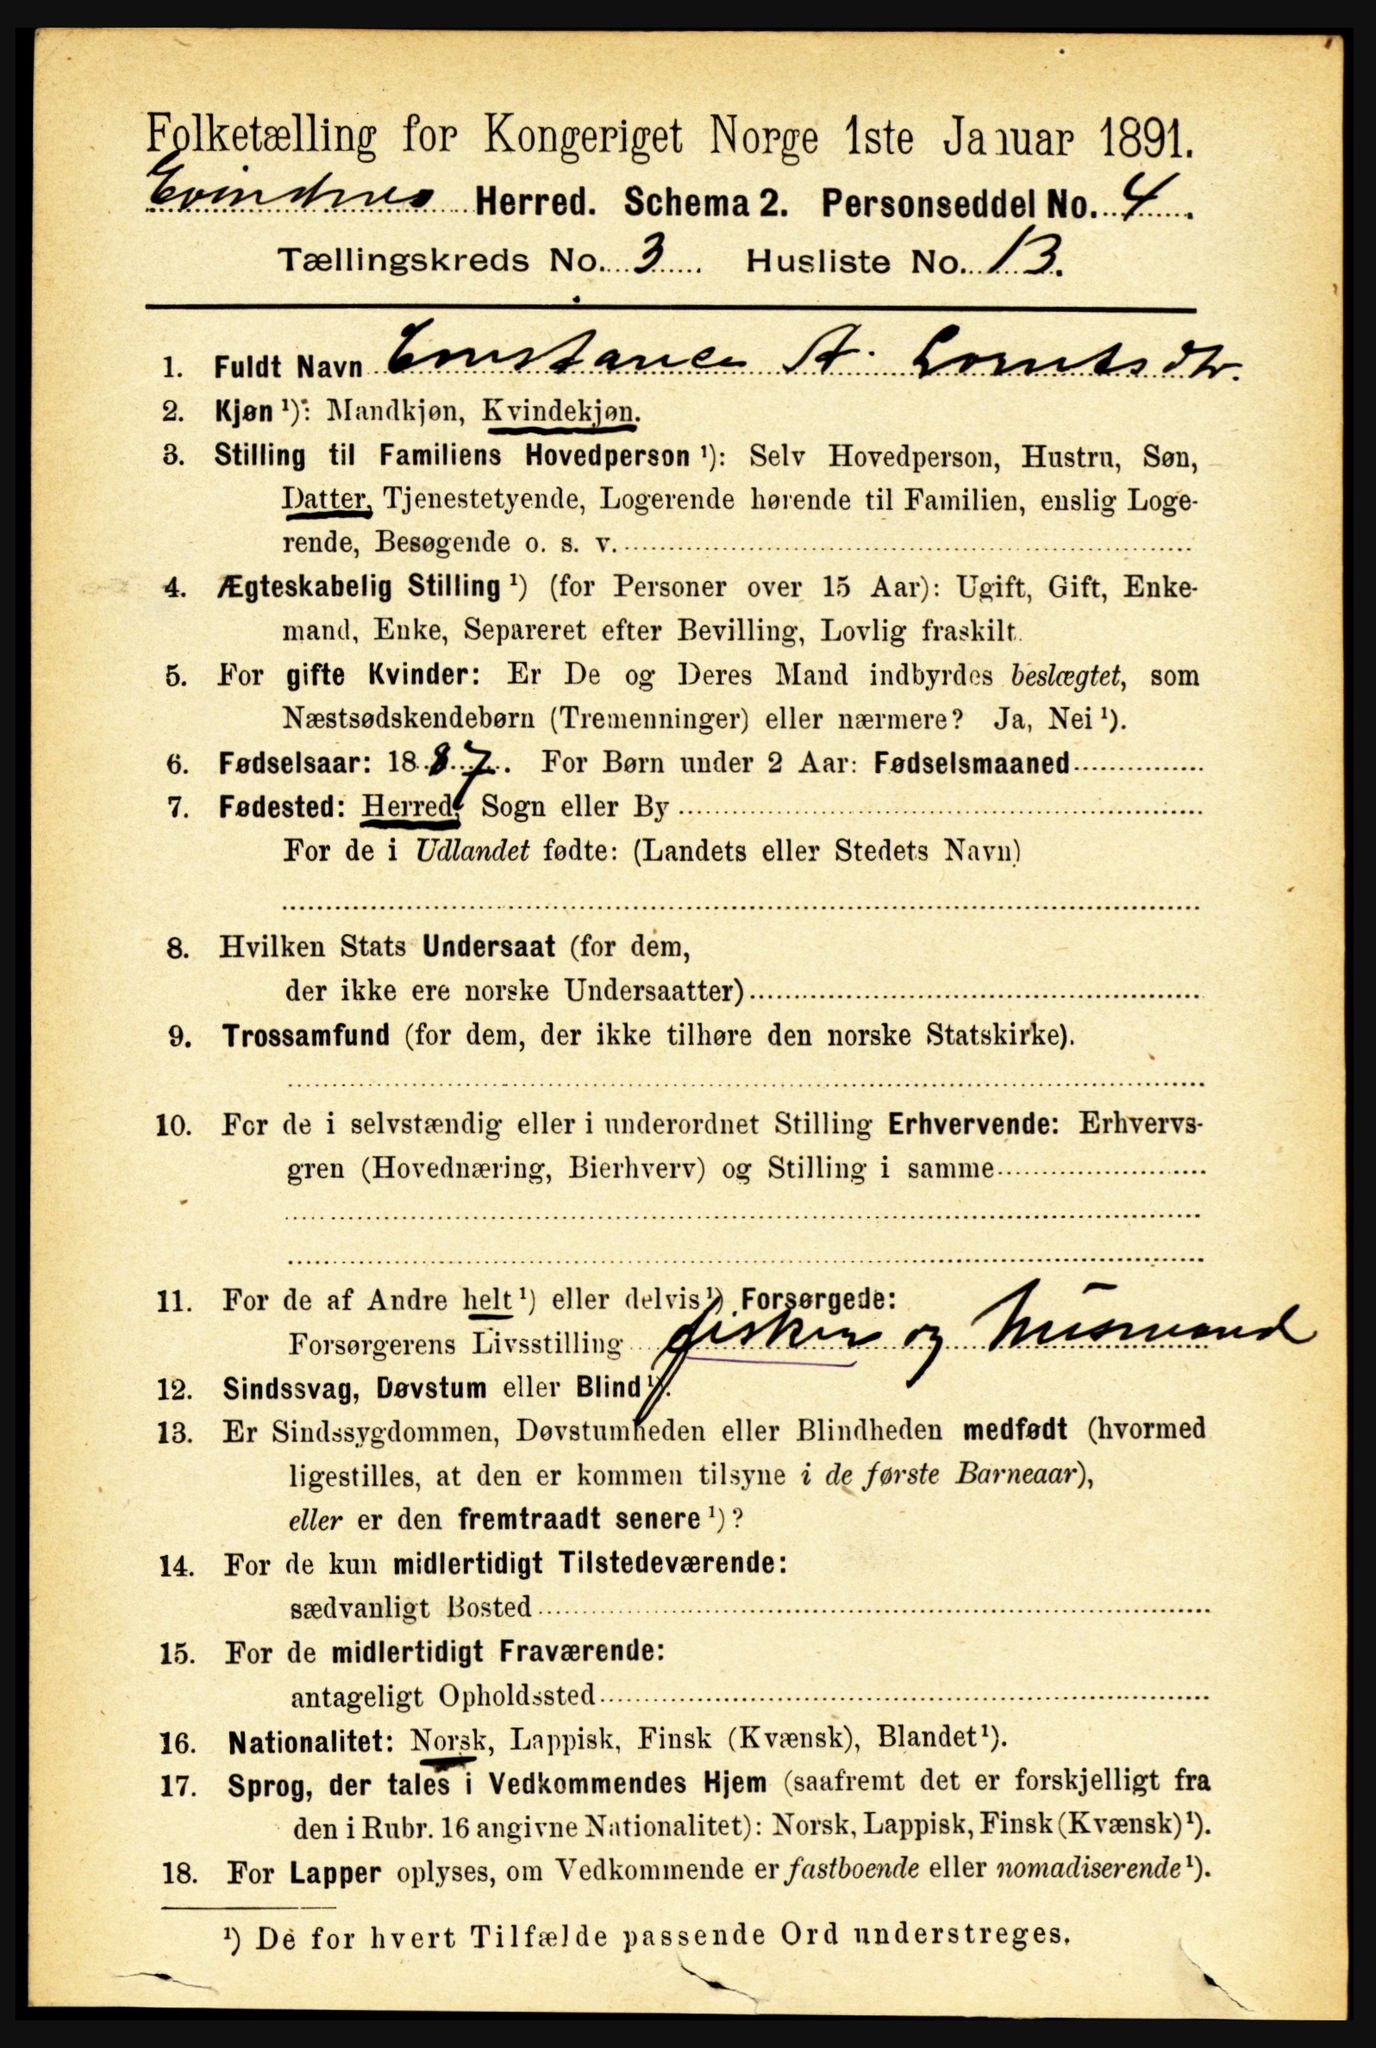 Folketælling for Kongeriget Norge 1ste Januar 1891.
Evindnes Herred. Schema 2. Personseddel No. 4.
Tællingskreds No. 3 Husliste No. 13.
1. Fuldt Navn Constance A. Lorntsdtr.
2. Kjøn ¹): Mandkjøn, Kvindekjøn.
3. Stilling til Familiens Hovedperson ¹): Selv Hovedperson, Hustru, Søn,
Datter, Tjenestetyende, Logerende hørende til Familien, enslig Loge-
rende, Besøgende o. s. v.
4. Ægteskabelig Stilling ¹) (for Personer over 15 Aar): Ugift, Gift, Enke-
mand, Enke, Separeret efter Bevilling, Lovlig fraskilt.
5. For gifte Kvinder: Er De og Deres Mand indbyrdes beslægtet, som
Næstsødskendebørn (Tremenninger) eller nærmere? Ja, Nei ¹).
6. Fødselsaar: 1887. For Børn under 2 Aar: Fødselsmaaned
7. Fødested: Herred, Sogn eller By
For de i Udlandet fødte: (Landets eller Stedets Navn)
8. Hvilken Stats Undersaat (for dem,
der ikke ere norske Undersaatter)
9. Trossamfund (for dem, der ikke tilhøre den norske Statskirke).
10. For de i selvstændig eller i underordnet Stilling Erhvervende: Erhvervs-
gren (Hovednæring, Bierhverv) og Stilling i samme
11. For de af Andre helt ¹) eller delvis ¹) Forsørgede:
Forsørgerens Livsstilling fisker og Husmand
12. Sindssvag, Døvstum eller Blind ¹).
13. Er Sindssygdommen, Døvstumheden eller Blindheden medfødt (hvormed
ligestilles, at den er kommen tilsyne i de første Barneaar),
eller er den fremtraadt senere ¹)?
14. For de kun midlertidigt Tilstedeværende:
sædvanligt Bosted
15. For de midlertidigt Fraværende:
antageligt Opholdssted
16. Nationalitet: Norsk, Lappisk, Finsk (Kvænsk), Blandet ¹).
17. Sprog, der tales i Vedkommendes Hjem (saafremt det er forskjelligt fra
den i Rubr. 16 angivne Nationalitet): Norsk, Lappisk, Finsk (Kvænsk) ¹).
18. For Lapper oplyses, om Vedkommende er fastboende eller nomadiserende ¹).
¹) De for hvert Tilfælde passende Ord understreges.